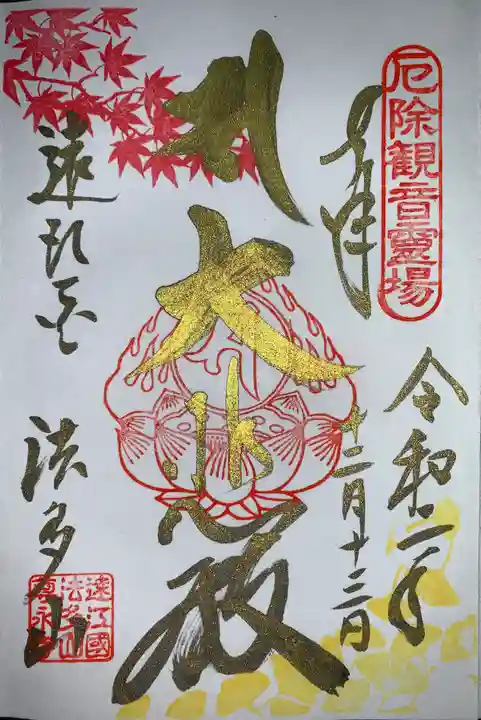 厄除観音靈場
奉拝
令和二年
十二月十三日
大悲殿
遠江国
法多山
遠江國
法多山
尊永寺